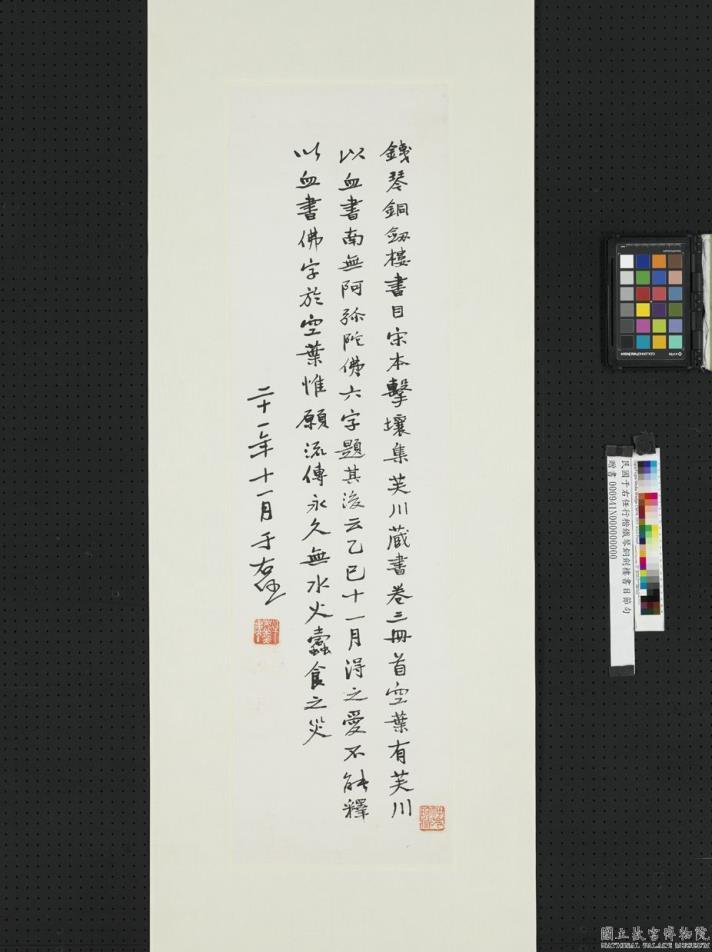 銕琴銅劔樓書目宋本擊壤集芙川藏書卷三冊首空葉有芙川
以血書南無阿弥陀佛六字題其後云乙巳十一月得之愛不能釋
以血書佛字於空葉惟願流傳永久無水火蠹食之災
二十一年十一月 于右任
民國于右任行楷鐵琴銅劍樓書目節句
贈書 000941N000000000
國立故宮博物院
NATIONAL PALACE MUSEUM